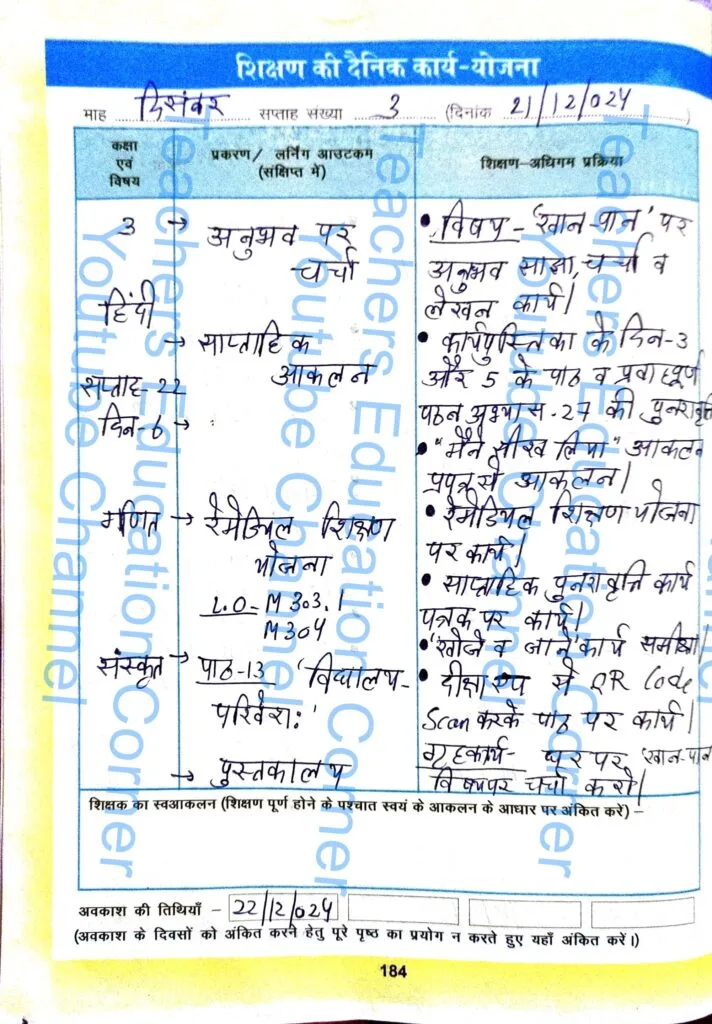 शिक्षण की दैनिक कार्य-योजना
माह दिसंबर सप्ताह संख्या 3 (दिनांक 21/12/024 )
कक्षा
एवं
विषय
प्रकरण/ लर्निंग आउटकम
(संक्षिप्त में)
शिक्षण-अधिगम प्रक्रिया
3 →
हिंदी
→
सप्ताह-22
दिन-6 →
गणित →
संस्कृत →
→
अनुभव पर
चर्चा
साप्ताहिक
आकलन
रेमेडियल शिक्षण
योजना
L.O- M 303.1
M304
पाठ-13 'विद्यालय-
परिवेशः'
पुस्तकालय
• विषय- 'खान-पान' पर
अनुभव साझा, चर्चा व
लेखन कार्य।
• कार्यपुस्तिका के दिन-3
और 5 के पाठ व प्रवाहपूर्ण
पठन अभ्यास-27 की पुनरावृत्ति
• "मैंने सीख लिया" आकलन
प्रपत्र से आकलन।
• रेमेडियल शिक्षण योजना
पर कार्य।
• साप्ताहिक पुनरावृत्ति कार्य
पत्रक पर कार्य।
• 'खोजें व जानें' कार्य समीक्षा।
• दीक्षा एप से QR Code
Scan करके पाठ पर कार्य।
गृहकार्य- घर पर 'खान-पान
विषय पर चर्चा करो।
शिक्षक का स्वआकलन (शिक्षण पूर्ण होने के पश्चात स्वयं के आकलन के आधार पर अंकित करें) –
अवकाश की तिथियाँ – 22/12/024
(अवकाश के दिवसों को अंकित करने हेतु पूरे पृष्ठ का प्रयोग न करते हुए यहाँ अंकित करें।)
184
Teachers Education Corner
Youtube Channel
Teachers Education Corner
Youtube Channel
Teachers Education Corner
Youtube Channel